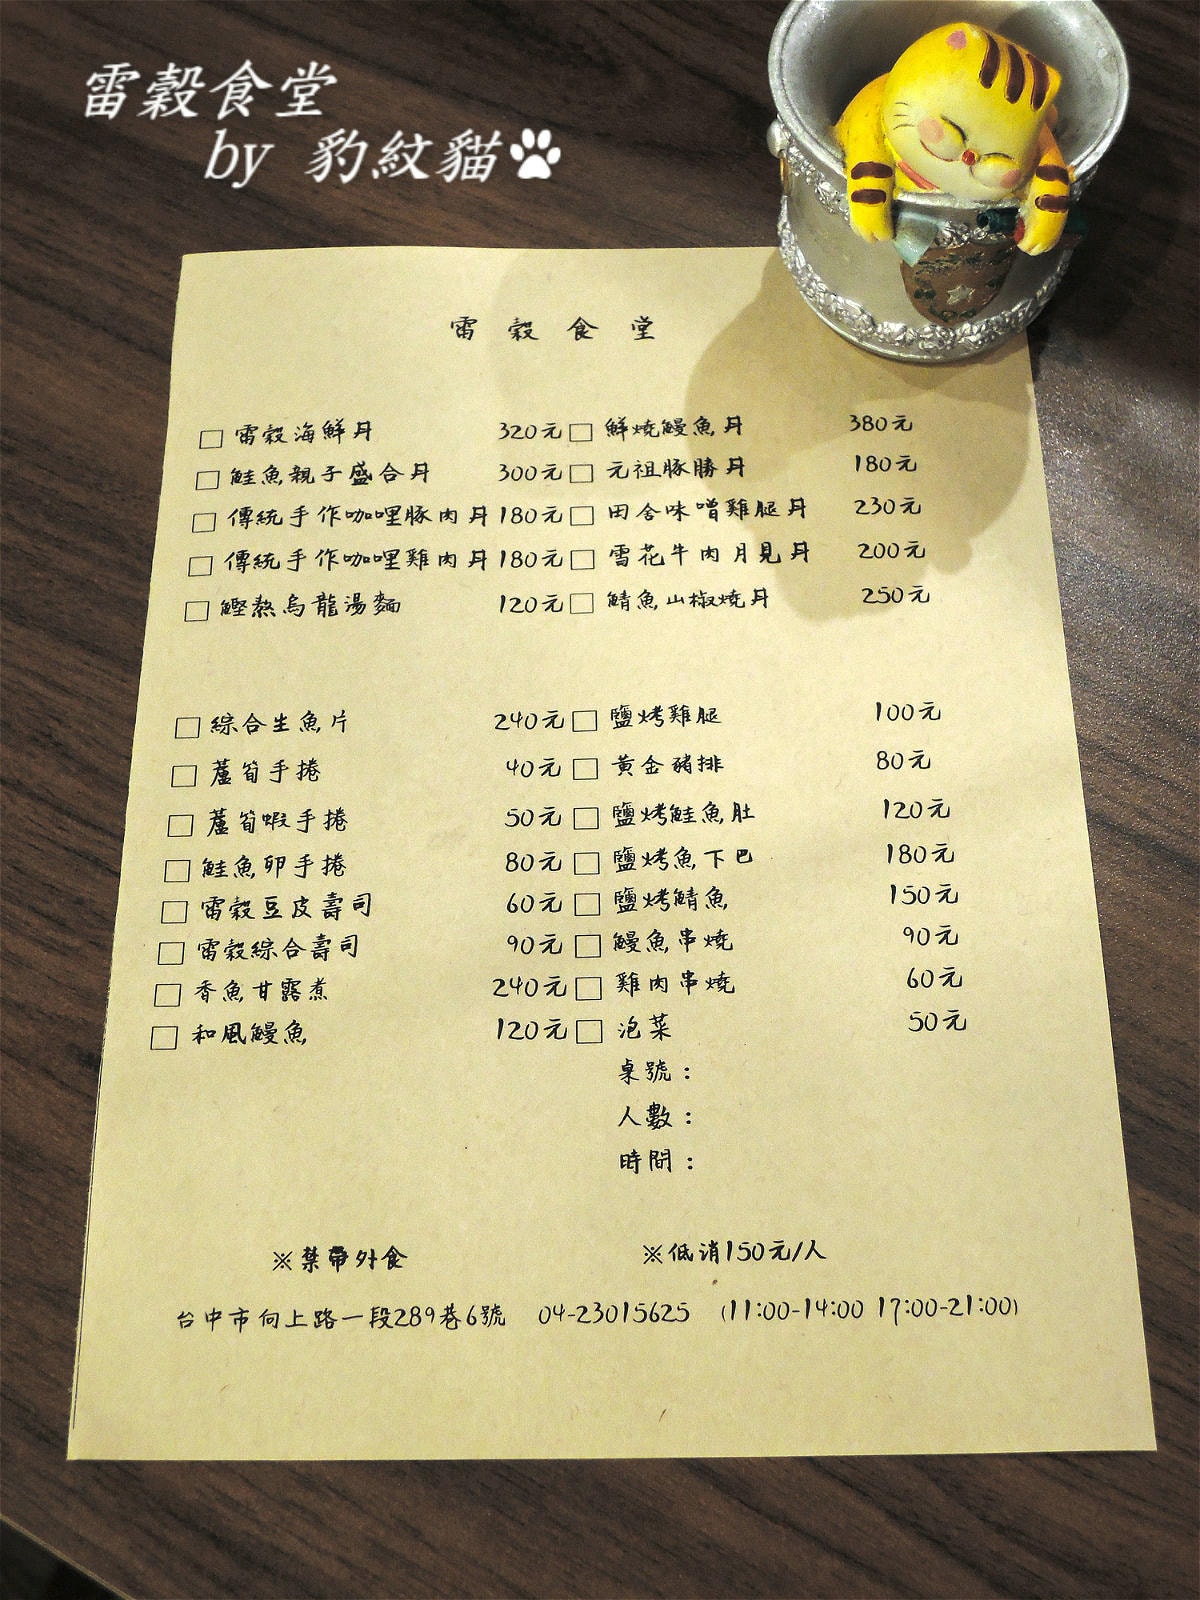 雷穀食堂
by 豹紋貓
雷穀食堂
□雷穀海鮮丼 320元 □鮮燒鰻魚丼 380元
□鮭魚親子盛合丼 300元 □元祖豚勝丼 180元
□傳統手作咖哩豚肉丼 180元 □田舍味噌雞腿丼 230元
□傳統手作咖哩雞肉丼 180元 □雪花牛肉月見丼 200元
□鰹熱烏龍湯麵 120元 □鯖魚山椒燒丼 250元
□綜合生魚片 240元 □鹽烤雞腿 100元
□蘆筍手捲 40元 □黃金豬排 80元
□蘆筍蝦手捲 50元 □鹽烤鮭魚肚 120元
□鮭魚卵手捲 80元 □鹽烤魚下巴 180元
□雷穀豆皮壽司 60元 □鹽烤鯖魚 150元
□雷穀綜合壽司 90元 □鰻魚串燒 90元
□香魚甘露煮 240元 □雞肉串燒 60元
□和風鰻魚 120元 □泡菜 50元
桌號：
人數：
時間：
※禁帶外食 ※低消150元/人
台中市向上路一段289巷6號 04-23015625 (11:00-14:00 17:00-21:00)